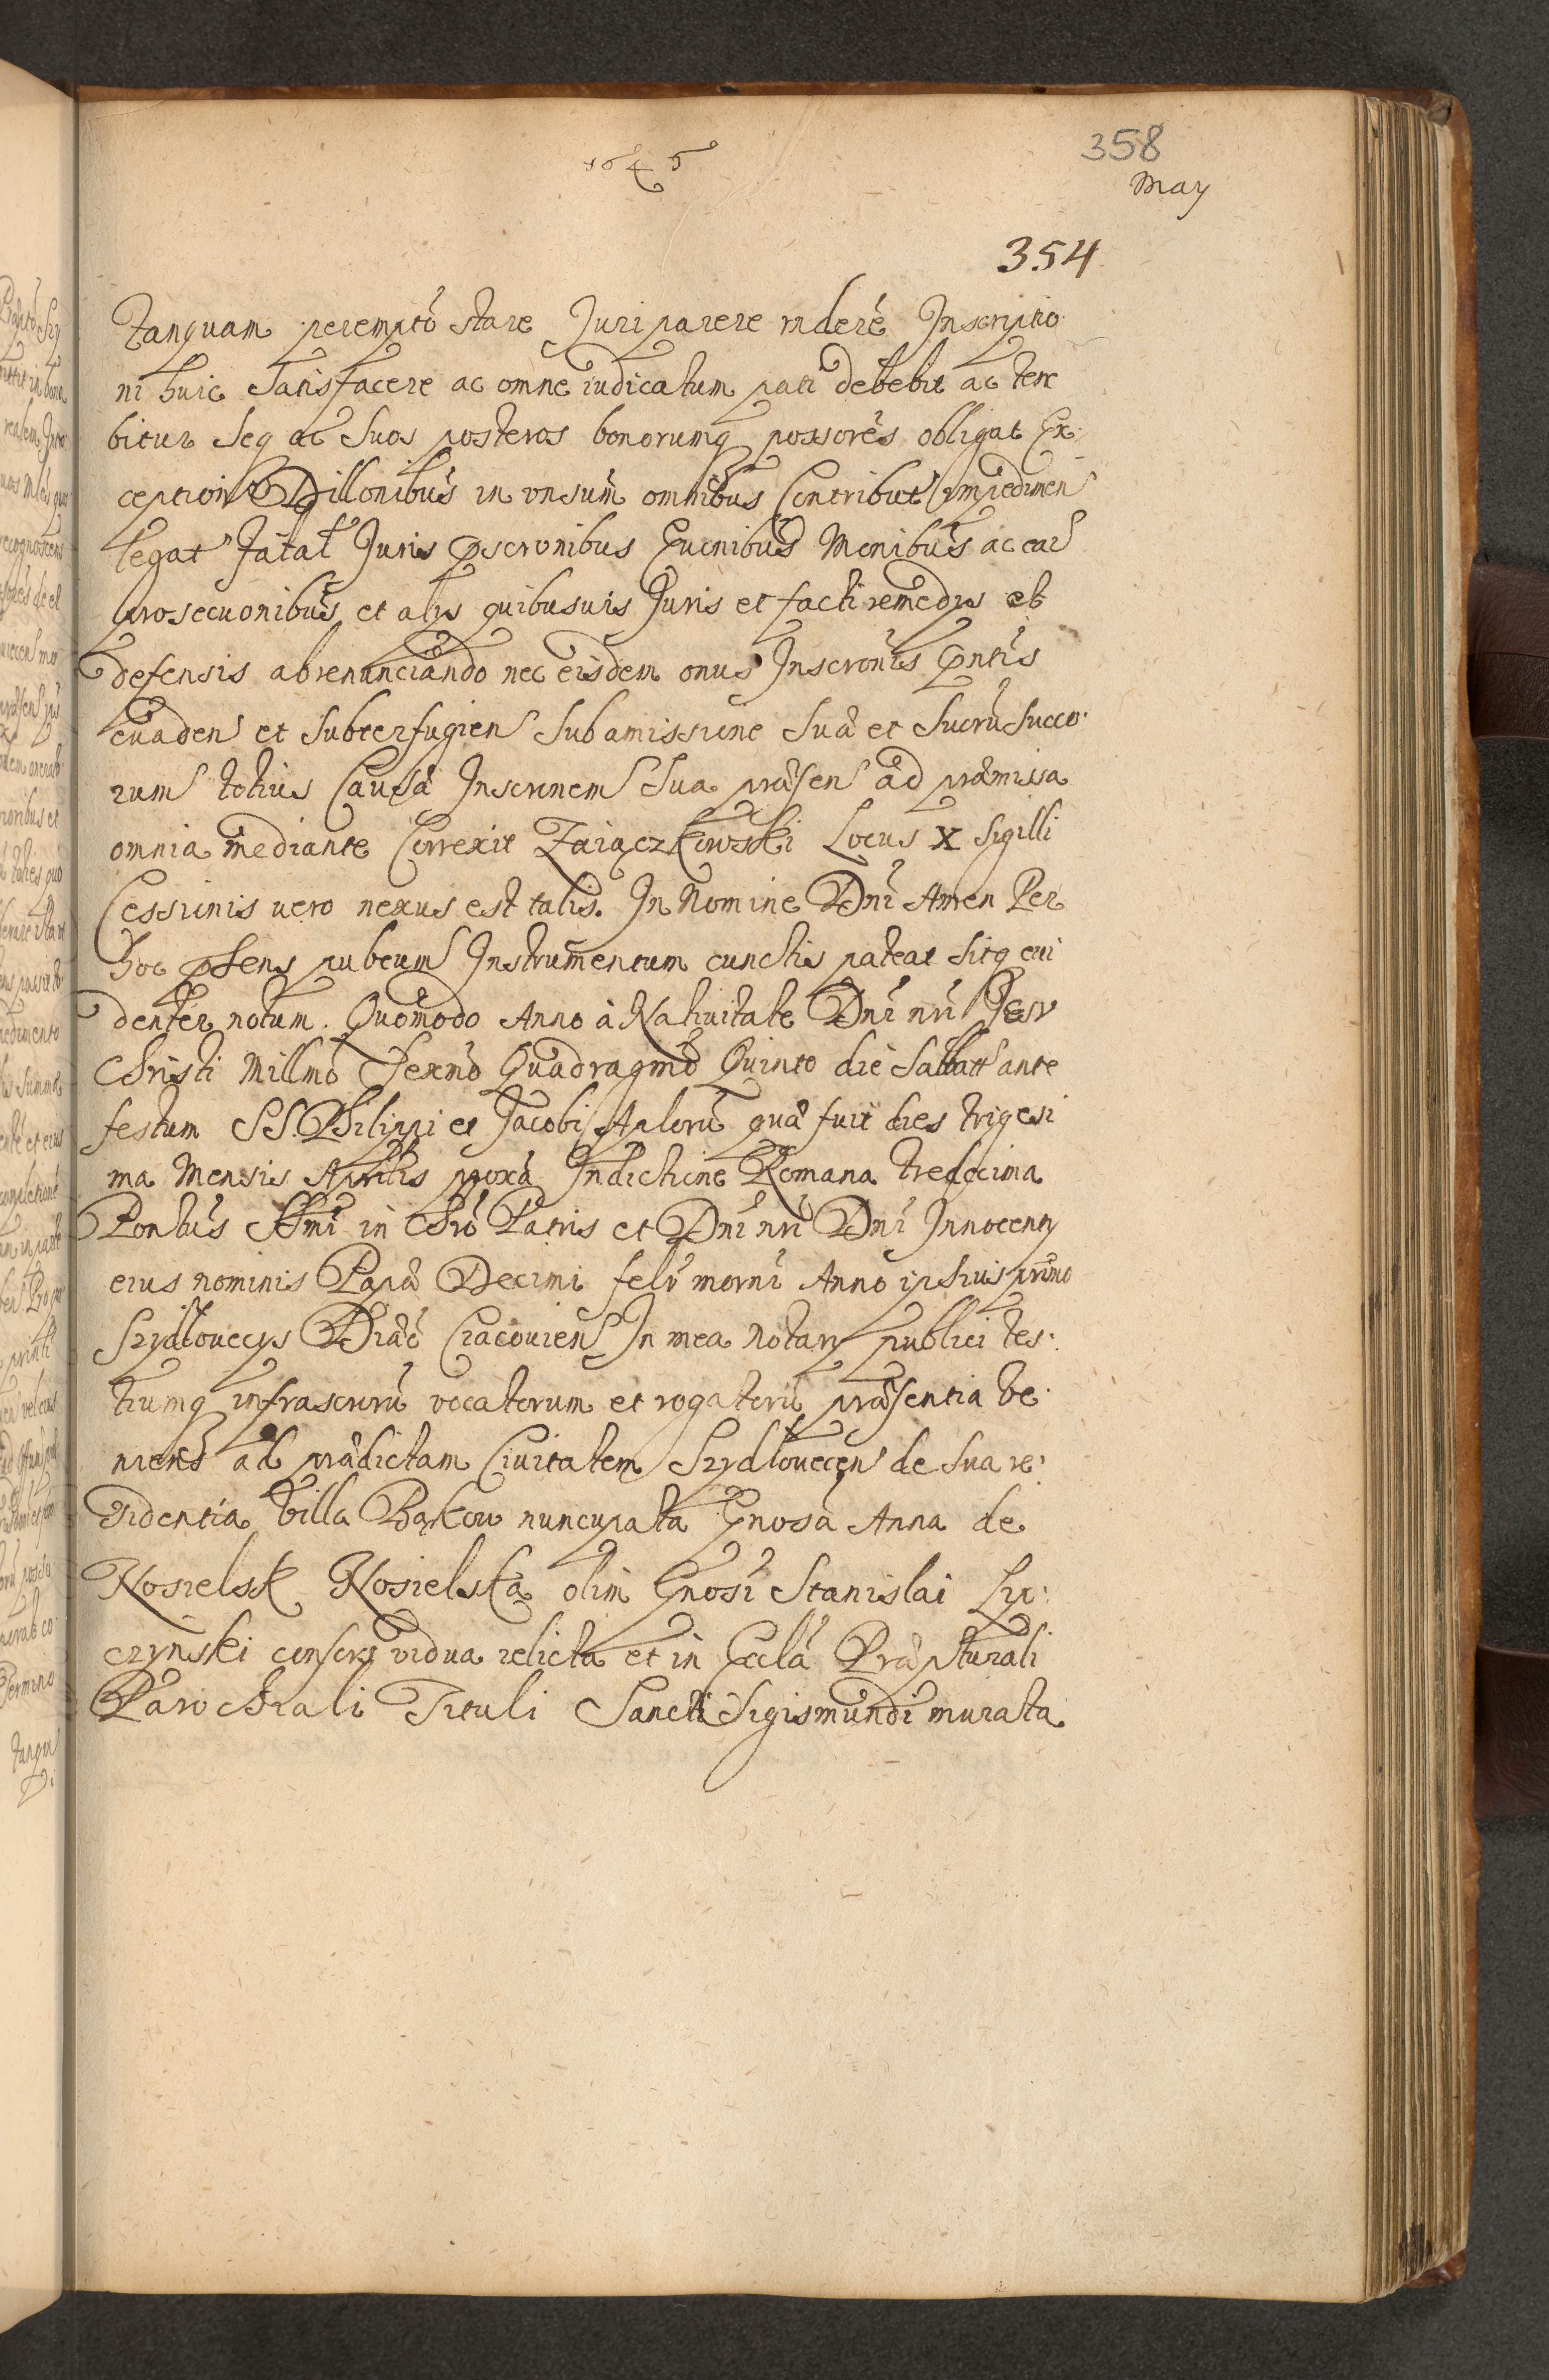 1645
358
May
354
tanquam peremptō stare Juri parere rnderē Inscriptio
ni huic Satisfacere ac omne iudicatum pati debebit ac tene
bitur Seq ac Suos posteros bonorumq possorēs obligat Ex:
ception Dillonibūs in vnsum omnibus Contribut impedimen
legat fatal Juris pscronibus Eucnibus Monibus ac ear
prosecuonibūs et alys quibusuis Juris et facti remedys et
defensis abrenunciando nec eisdem onus Inscronis pntis
euaden et Subterfugien Sub amissione Sua et Sucrū Succo:
rum totius Causa Inscronem Sua præsen ad præmissa
omnia mediante Correxit Zaiączkowski Locus X Sigilli
Cessionis vero nexus est talis. In Nomine Dnī Amen Per
hoc psens pubcum Instrumentum cunctis pateat sitq eui
denter notum. Quomodo Anno à Natiuitate Dnī nrī Jesv
Christi Millmō Sexmō Quadragmō Quinto die Sabbatt ante
festum SS. Philippi et Jacobi Aplorū quæ fuit dies trigesi
ma Mensis Aprilis proxā Indictione Romana tredecima
Pontūs SSmī in Chrō Patris et Dnī nrī Dnī Innocenty
eius nominis Papæ Decimi felr morni Anno ipsius primo
Szydłovecys Diæc Cracovien In mea Notary publici tes:
tiumq infrascrorū vocatorum et rogatorū præsentia ve:
niens ad prædictam Ciuitatem Szydłovecen de sua re:
sidentia Villa Bąkow nuncupata Gnosa Anna de
Kosielsk Kosielska olim Gnosi Stanislai Ly:
czynski consors vidua relicta et in Eccla Præpturali
Parochiali Tituli Sancti Sigismundi murata